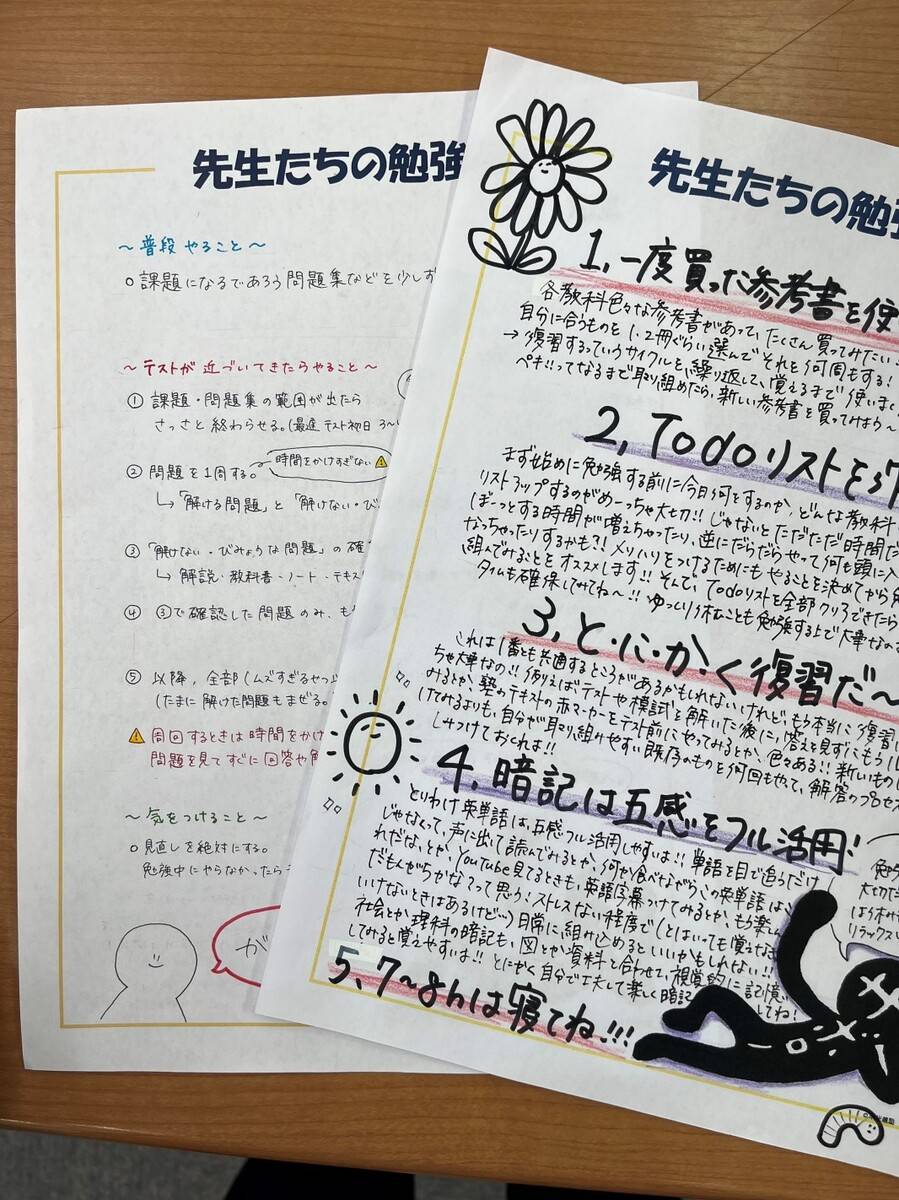 先生たちの勉強
～普段やること～
○課題になるであろう問題集などを少しず
～テストが近づいてきたらやること～
① 課題・問題集の範囲が出たら
さっさと終わらせる。(最遅 テスト初日 3～
② 問題を1周する。 時間をかけすぎない⚠
↳「解ける問題」と「解けない・び
③ 「解けない・びみょうな問題」の確
↳ 解説・教科書・ノート・テキス
④ ③で確認した問題のみ、も
⑤ 以降、全部(ムズすぎるやつ
(たまに解けた問題もまぜる。
⚠ 周回するときは時間をかけ
問題を見てすぐに回答や解
～気をつけること～
○見直しを絶対にする。
勉強中にやらなかったら
が
先生たちの勉強
1, 一度買った参考書を使
各教科色々な参考書があって、たくさん買ってみたい
自分に合うものを1.2冊ぐらい選んでそれを何周もする!
→復習するっていうサイクルを繰り返して、覚えるまで使いま
ペキ!!ってなるまで取り組めたら、新しい参考書を買ってみよう～
2, Todoリストを
まず始めに勉強する前に今日何をするのか、どんな教科
リストアップするのがめーっちゃ大切!! じゃないとただただ時間だ
ぼーっとする時間が増えちゃったり、逆にだらだらやって何も頭に入
なっちゃったりするかも?! メリハリをつけるためにもやることを決めてから
組んでみることをオススメします!! そんで、Todoリストを全部クリアできたら
タイムも確保してみてね～!! ゆっくり休むことも勉強する上で大事なの
3, と・に・か・く復習だ～
これは1番とも共通するところがあるかもしれないけれど、もう本当に復習
ちゃ大事なの!! 例えばテストや模試を解いた後に、答えを見ずにもう1
みるとか、塾のテキストの赤マーカーをテスト前にやってみるとか、色々ある!! 新しいもの
けてみるよりも、自分が取り組みやすい既存のものを何回もやって、解答のプロセス
しみつけておくれよ!!
4, 暗記は五感をフル活用!
とりわけ英単語は、五感フル活用しやすいよ!! 単語を目で追うだけ
じゃなくって、声に出して読んでみるとか、何か食べながらこの英単語は、
れだな、とか、YouTube見てるときも、英語字幕つけてみるとか、もう楽し
だもんがちかな?って思う! ストレスない程度で(とはいっても覚えなきゃ
いけないときはあるけど…)日常に組み込めるといいかもしれない!!
社会とか理科の暗記も、図とか資料と合わせて、視覚的に記憶
してみると覚えやすいよ!! とにかく自分で工夫して楽しく暗記してね!
5, 7～8hは寝てね!!!
勉強
大切だ
リラックス